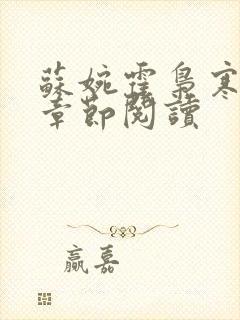 蘇婉霍梟寒
章節閱讀
贏嘉